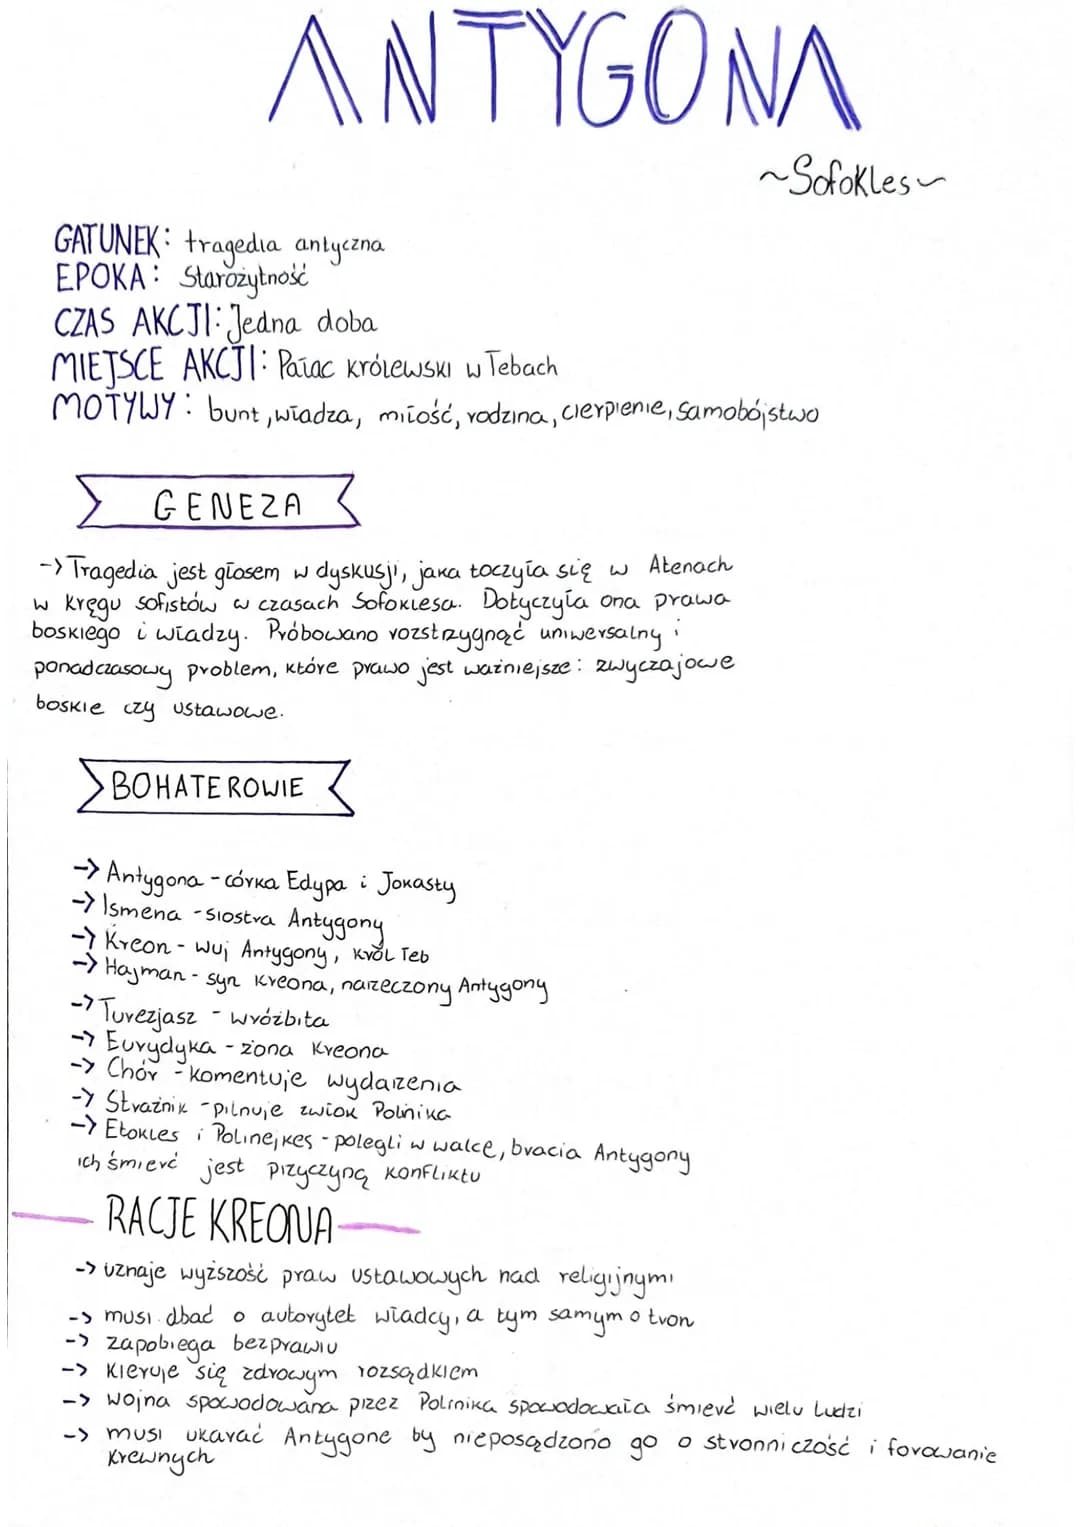 ANTYGONA
~Sofokles~
GATUNEK: tragedia antyczna
EPOKA: Starożytność
CZAS AKCJI: Jedna doba
MIEJSCE AKCJI: Pałac królewski w Tebach
MOTYWY: bunt, władza, miłość, rodzina, cierpienie, samobójstwo
GENEZA
-> Tragedia jest głosem w dyskusji, jaka toczyła się w Atenach
w kręgu sofistów w czasach Sofoklesa. Dotyczyła ona prawa
boskiego i władzy. Próbowano rozstrzygnąć uniwersalny i
ponadczasowy problem, które prawo jest ważniejsze: zwyczajowe
boskie czy ustawowe.
BOHATEROWIE
-> Antygona - córka Edypa i Jokasty
-> Ismena - siostra Antygony
-> Kreon - wuj Antygony, król Teb
-> Hajman - syn Kreona, narzeczony Antygony
-> Turezjasz - wróżbita
-> Eurydyka - żona Kreona
-> Chór - komentuje wydarzenia
-> Strażnik - pilnuje zwłok Polinika
-> Etokles i Polinejkes - polegli w walce, bracia Antygony
ich śmierć jest przyczyną konfliktu
RACJE KREONA
-> uznaje wyższość praw ustawowych nad religijnymi
-> musi dbać o autorytet władcy, a tym samym o tron
-> zapobiega bezprawiu
-> kieruje się zdrowym rozsądkiem
-> wojna spowodowana przez Polinika spowodowała śmierć wielu ludzi
-> musi ukarać Antygone by nieposądzono go o stronniczość i forowanie
krewnych